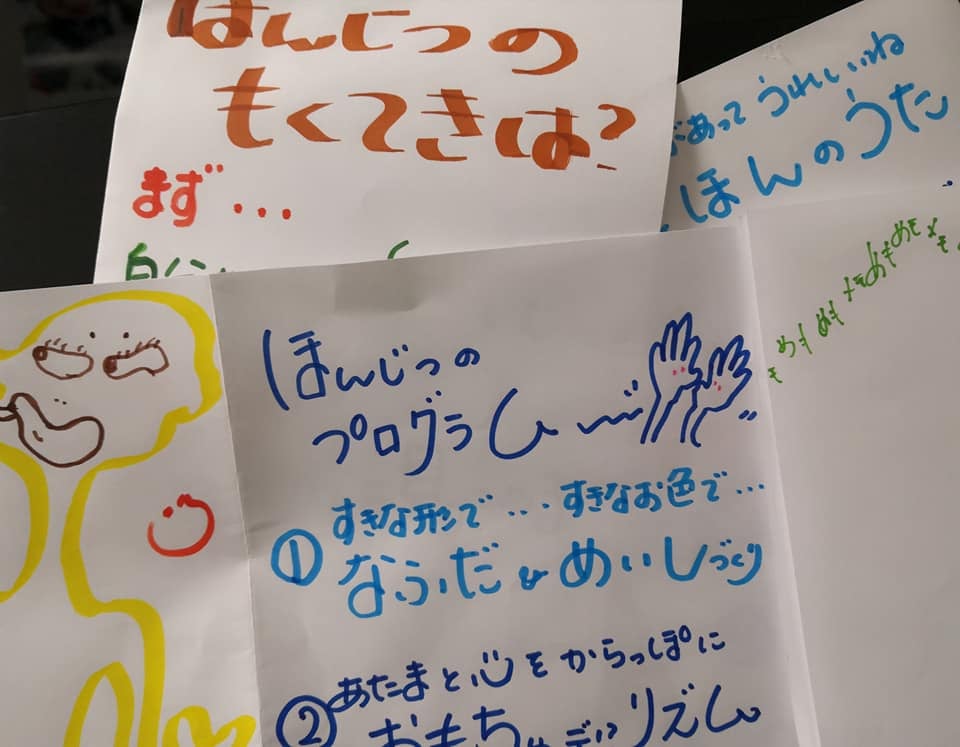 ほんじつの
もくてきは?
まず…
があって うれしいね
ほんのうた
ほんじつの
プログラム
① すきな形で…すきなお色で…
なふだ & めいしづくり
② あたまと心をからっぽに
おもちゃでリズム